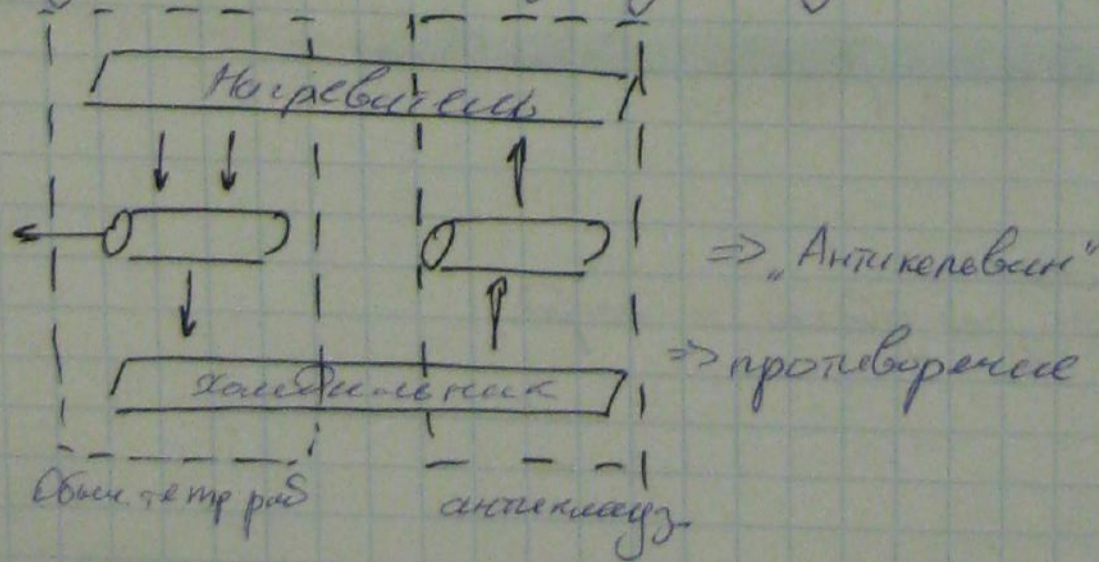 Нагреватель
=> „Антикельвин"
=> противоречие
холодильник
антиклауз.